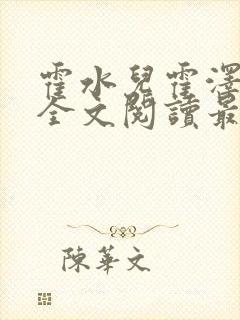 霍水兒霍澤
全文閱讀最
陳華文